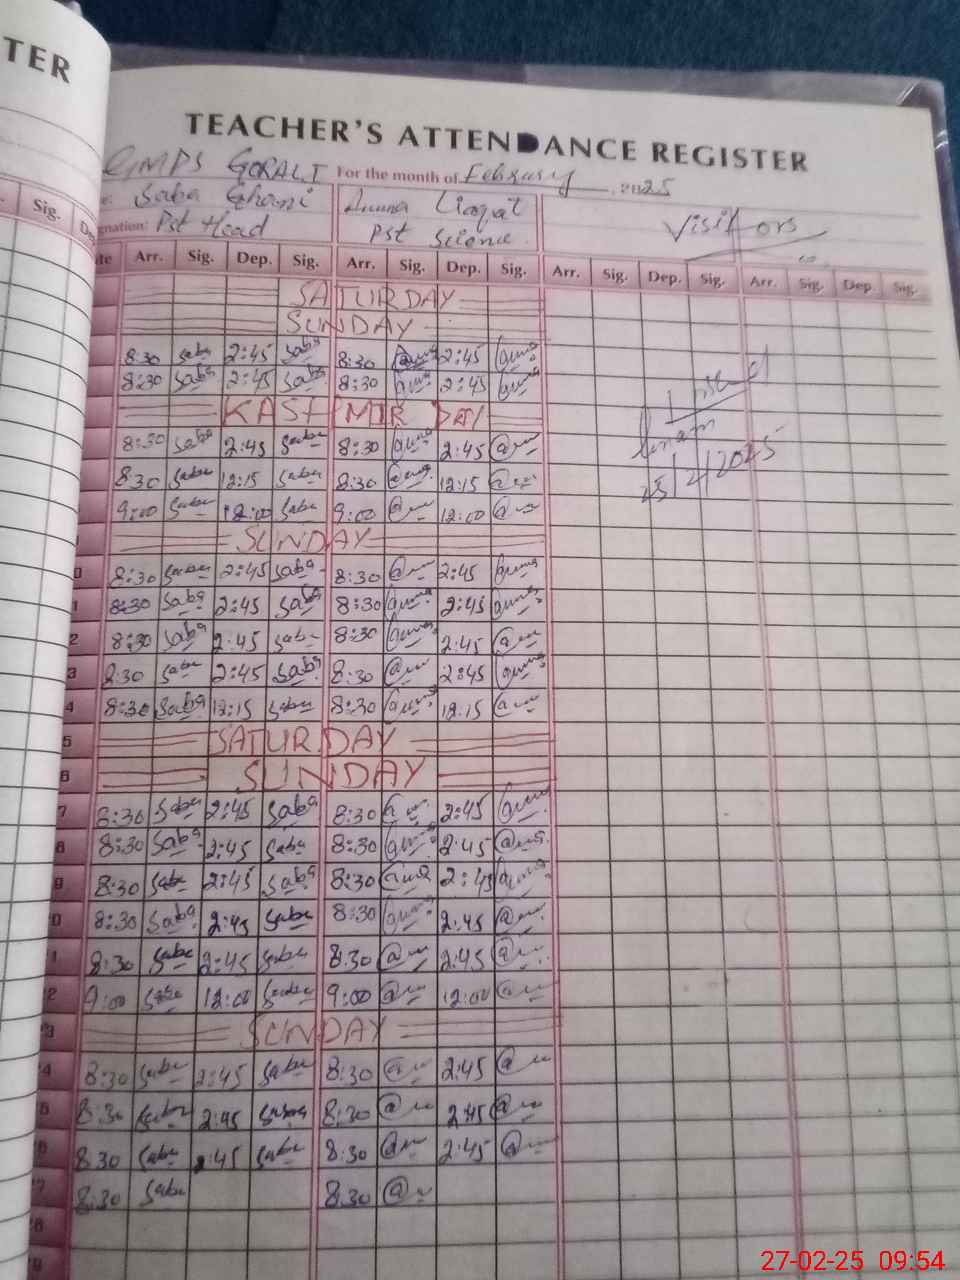 TER
TEACHER'S ATTENDANCE REGISTER
GMPS GORALI For the month of February 2025
Saba Ghani Amna Liaqat Visitors
Designation: Pst Head Pst Science
Sig. Date Arr. Sig. Dep. Sig. Arr. Sig. Dep. Sig. Arr. Sig. Dep. Sig. Arr. Sig. Dep. Sig.
SATURDAY
SUNDAY
8:30 Saba 2:45 Saba 8:30 Amna 2:45 Amna
8:30 Saba 2:45 Saba 8:30 Amna 2:45 Amna
KASHMIR DAY
8:30 Saba 2:45 Saba 8:30 Amna 2:45 Amna
8:30 Saba 12:15 Saba 8:30 Amna 12:15 Amna
25/2/2025
9:00 Saba 12:00 Saba 9:00 Amna 12:00 Amna
SUNDAY
0 8:30 Saba 2:45 Saba 8:30 Amna 2:45 Amna
1 8:30 Saba 2:45 Saba 8:30 Amna 2:45 Amna
2 8:30 Saba 2:45 Saba 8:30 Amna 2:45 Amna
3 8:30 Saba 2:45 Saba 8:30 Amna 2:45 Amna
4 8:30 Saba 12:15 Saba 8:30 Amna 12:15 Amna
5 SATURDAY
6 SUNDAY
7 8:30 Saba 2:45 Saba 8:30 Amna 2:45 Amna
8 8:30 Saba 2:45 Saba 8:30 Amna 2:45 Amna
9 8:30 Saba 2:45 Saba 8:30 Amna 2:45 Amna
0 8:30 Saba 2:45 Saba 8:30 Amna 2:45 Amna
1 8:30 Saba 2:45 Saba 8:30 Amna 2:45 Amna
2 9:00 Saba 12:00 Saba 9:00 Amna 12:00 Amna
3 SUNDAY
4 8:30 Saba 2:45 Saba 8:30 Amna 2:45 Amna
5 8:30 Saba 2:45 Saba 8:30 Amna 2:45 Amna
6 8:30 Saba 2:45 Saba 8:30 Amna 2:45 Amna
7 8:30 Saba 8:30 Amna
28
29
27-02-25 09:54